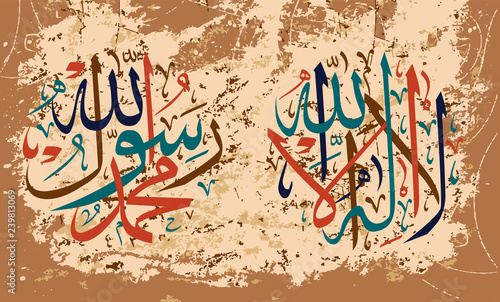 لا إله إلا الله
محمد رسول الله
Adobe Stock
239813069